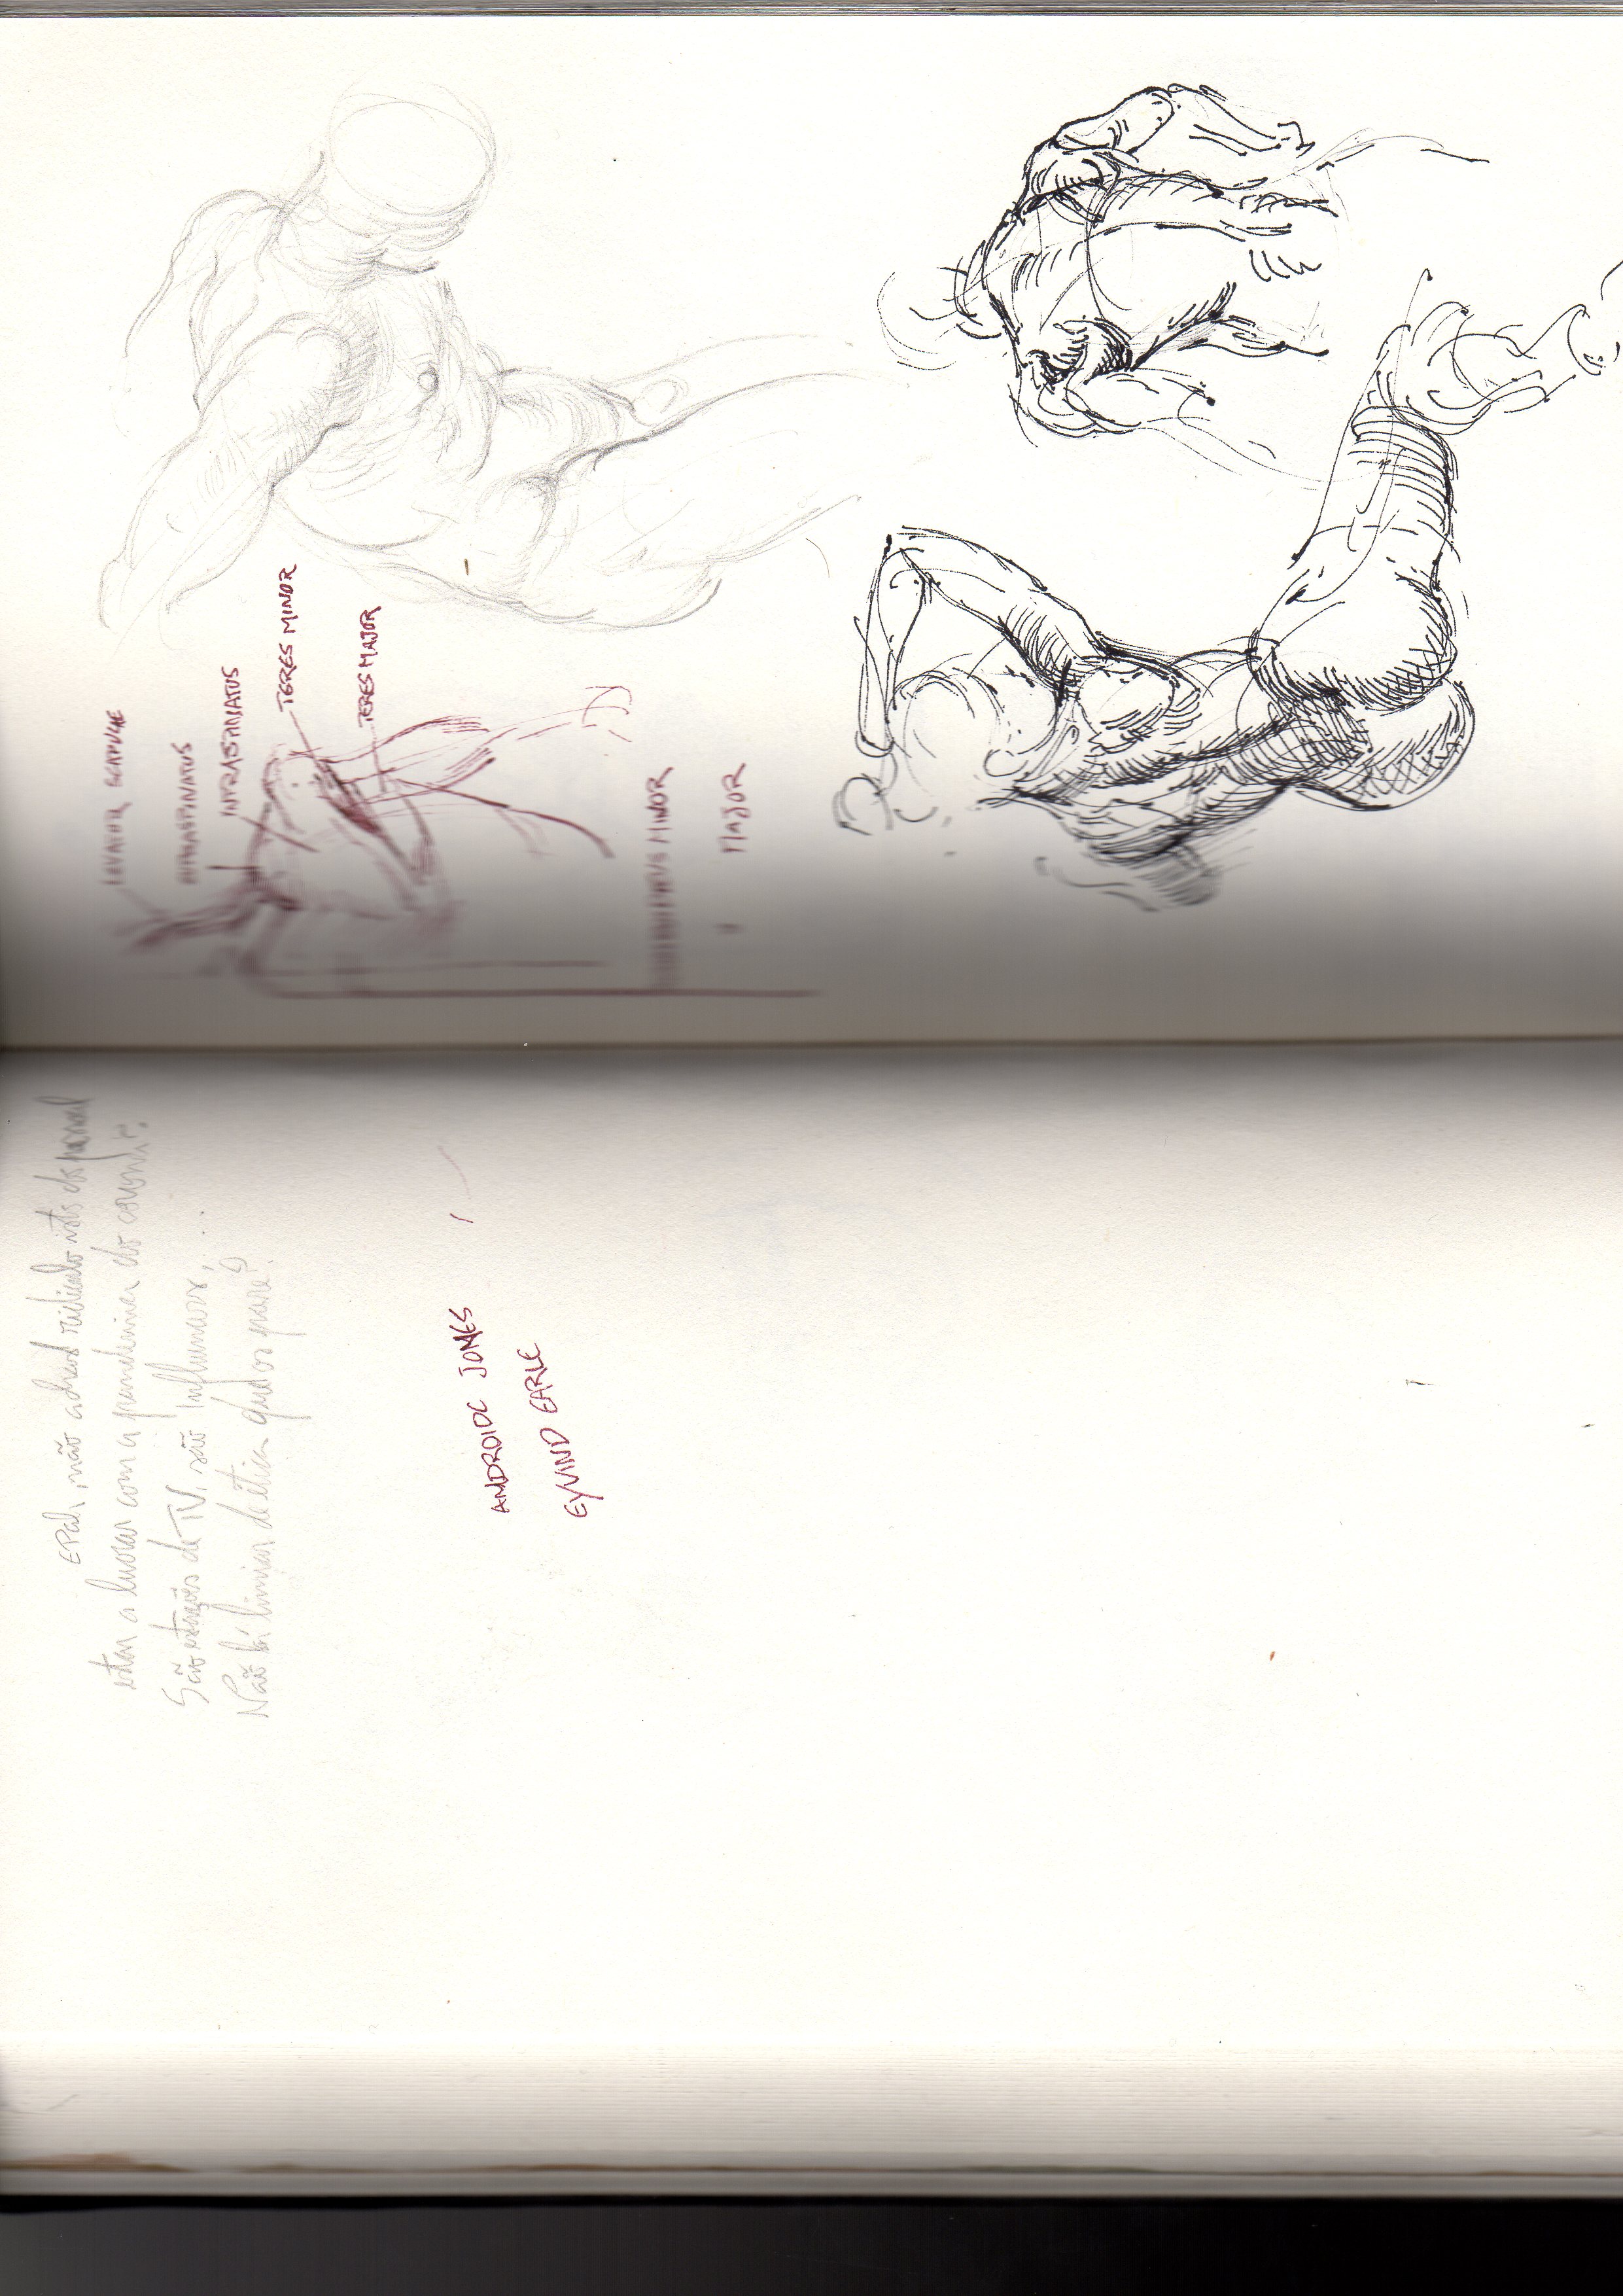 EPah, não achas ridículo isto do pessoal
estar a lucrar com a pandemia do corona?
São estações de TV, são Influencers, ...
Não há limiar de ética que os pare?
ANDROIDC JONES
EYVIND EARLE
LEVATOR SCAPULAE
SUPRASPINATUS
INFRASPINATUS
TERES MINOR
TERES MAJOR
MINOR
" MAJOR